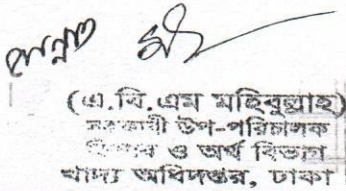 (এ.বি.এম মহিবুল্লাহ)
সহকারী উপ-পরিচালক
হিসাব ও অর্থ বিভাগ
খাদ্য অধিদপ্তর, ঢাকা